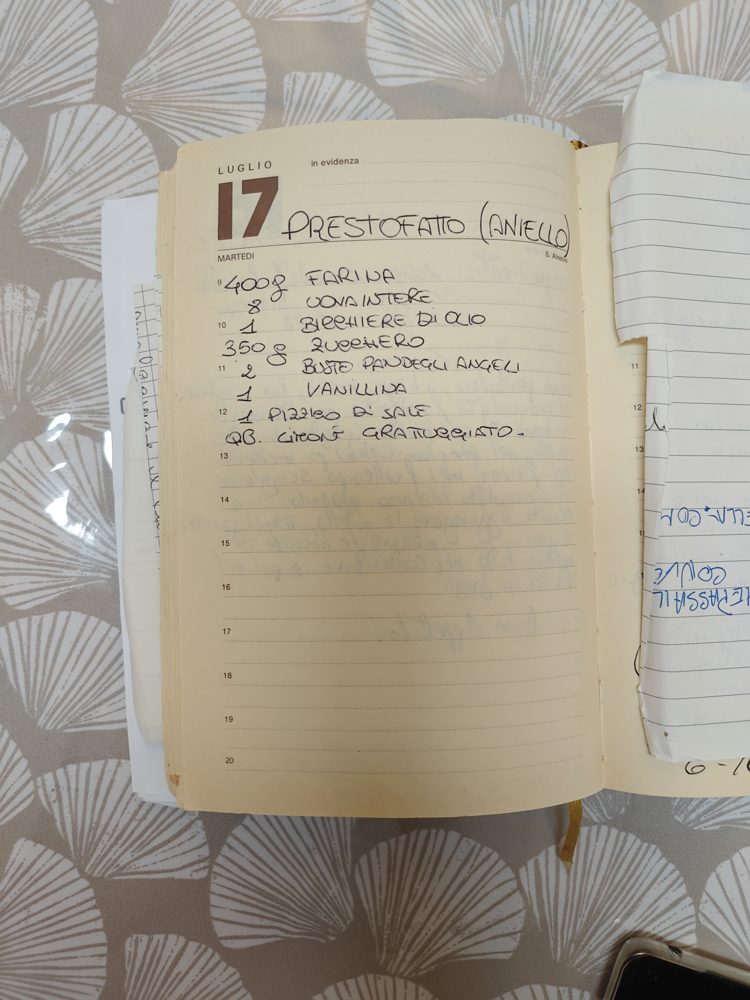 LUGLIO
in evidenza
17
PRESTOFATTO (ANIELLO)
MARTEDI
9 400g FARINA
8 UOVA INTERE
10 1 BICCHIERE DI OLIO
350g ZUCCHERO
11 2 BUSTE PANDEGLI ANGELI
1 VANILLINA
12 1 PIZZICO DI SALE
QB. LIMONE GRATTUGGIATO.
13
14
15
16
17
18
19
20
11
12
13
14